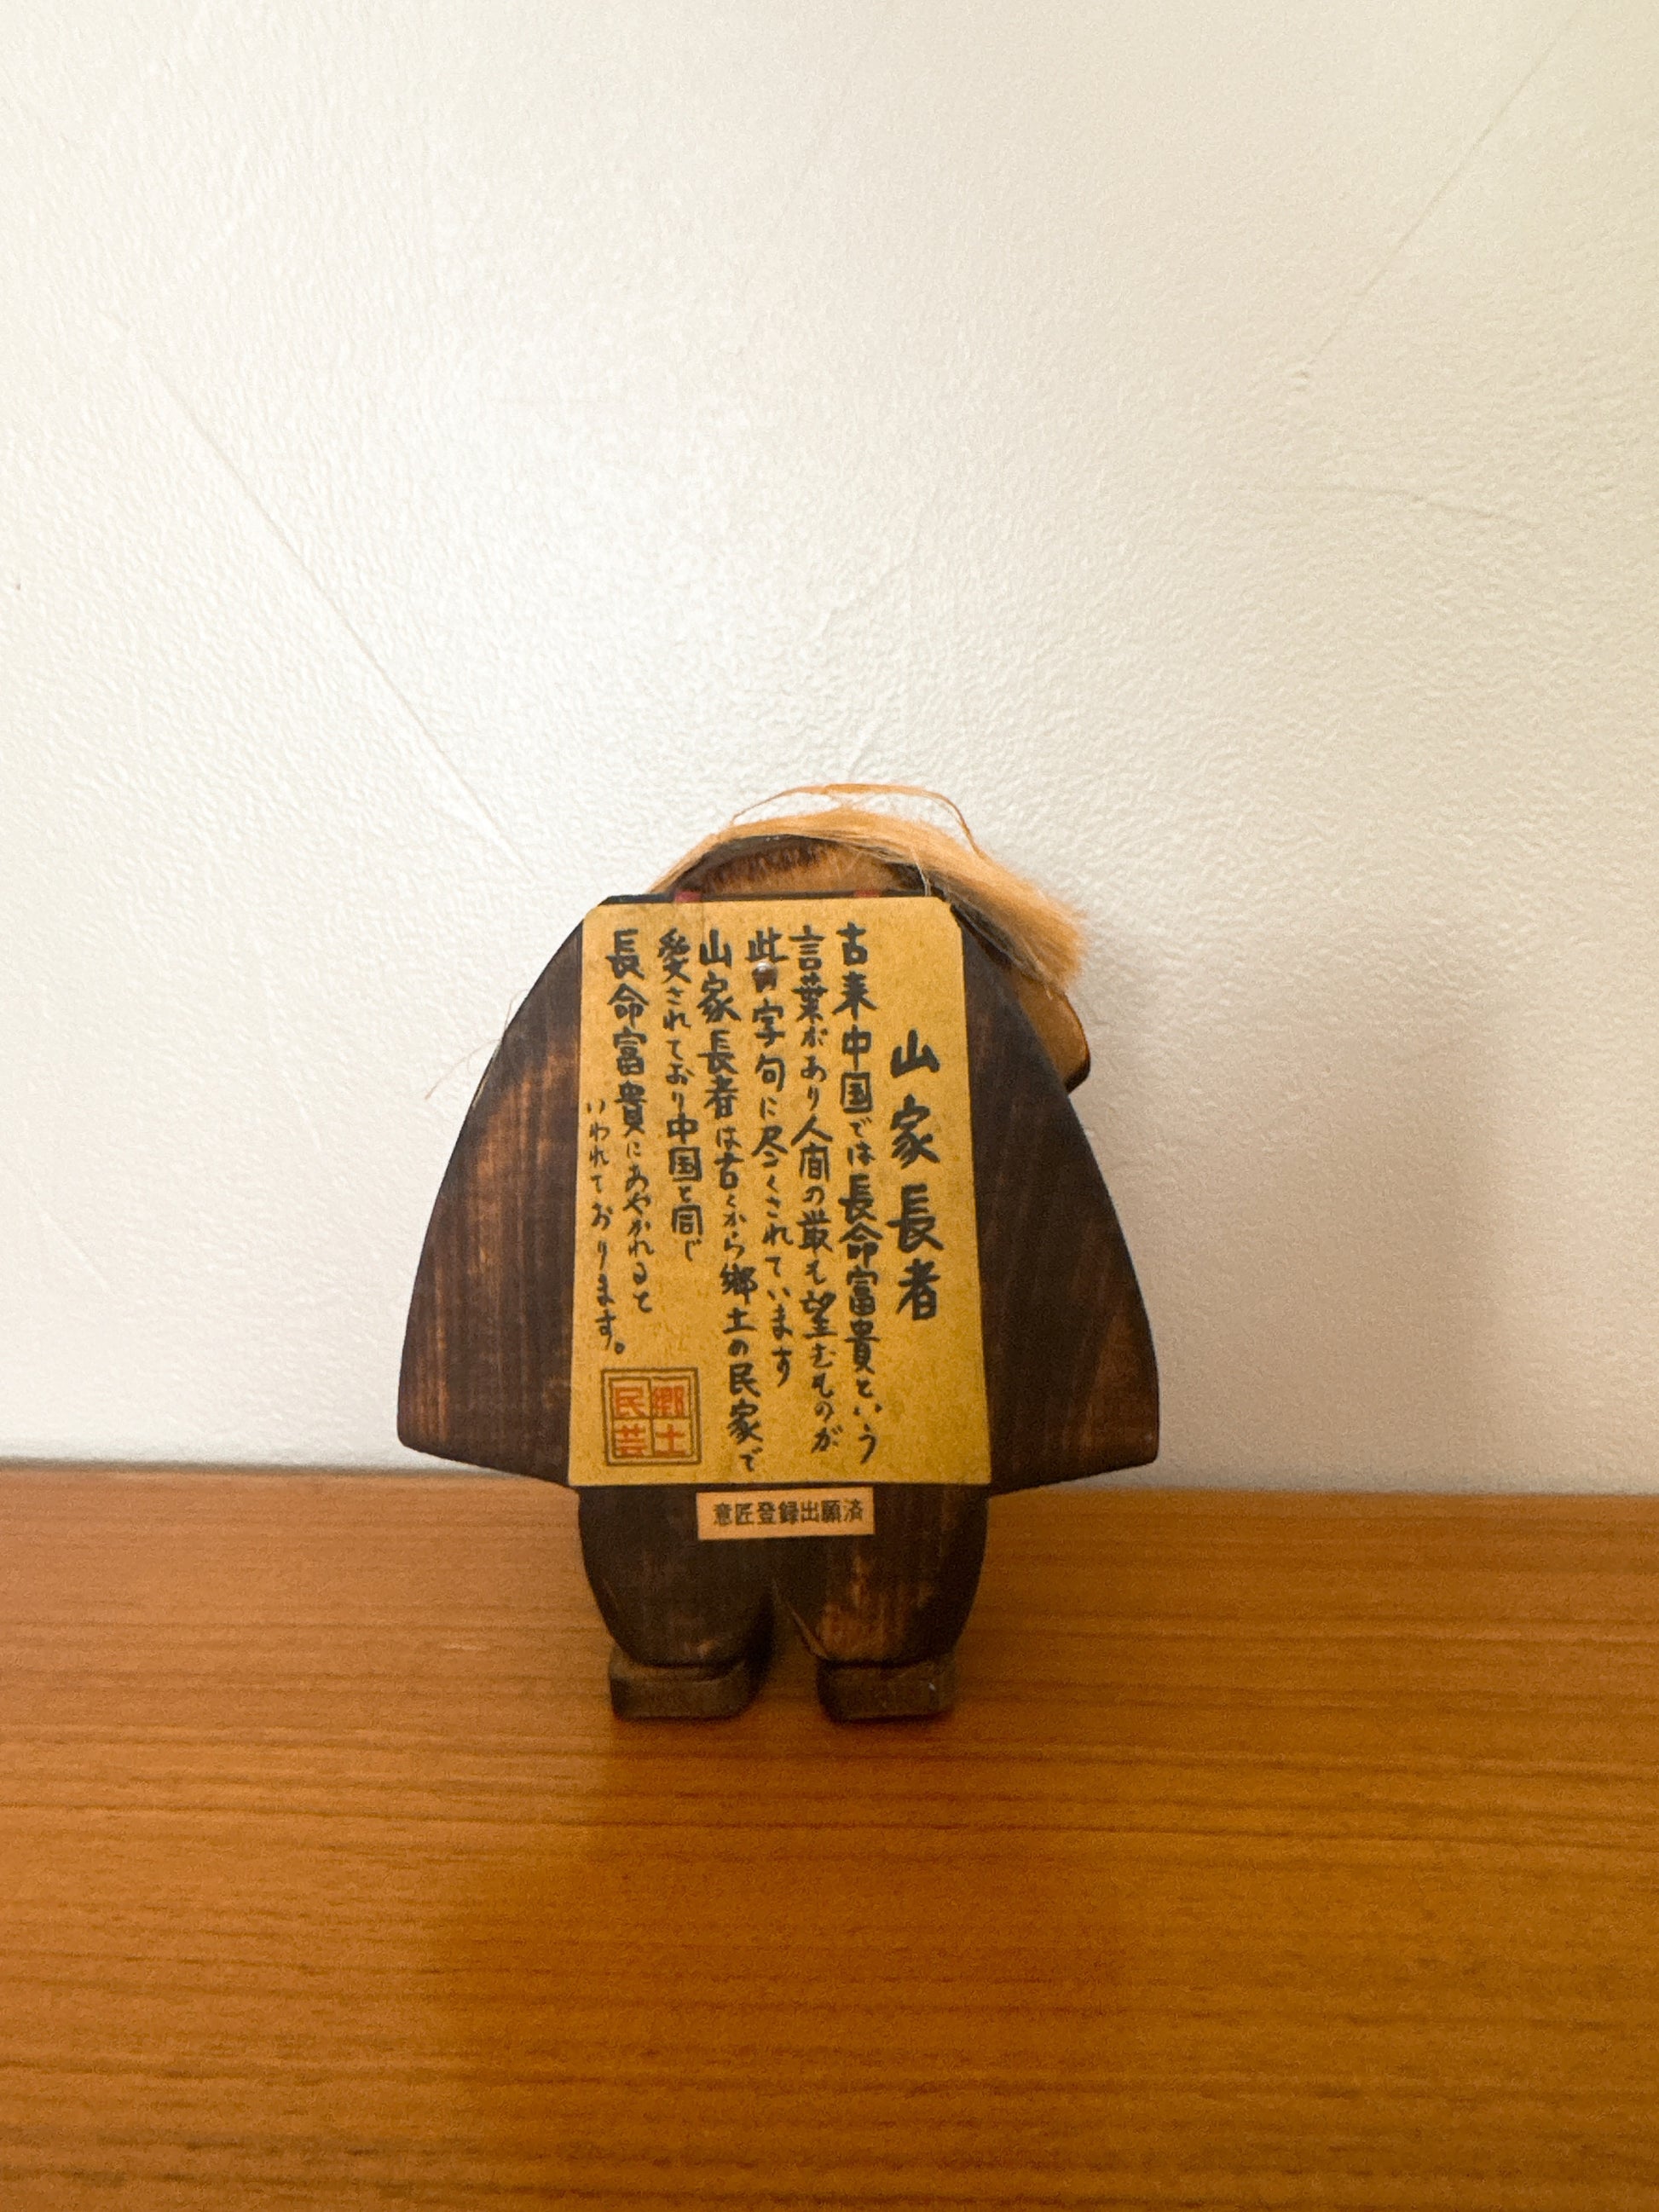 山家長者
古来中国では長命富貴という
言葉があり人間の最も望むものが
此の字句に尽くされています
山家長者は古くから郷土の民家で
愛されており中国と同じ
長命富貴にあやかれると
いわれております。
郷土
民芸
意匠登録出願済